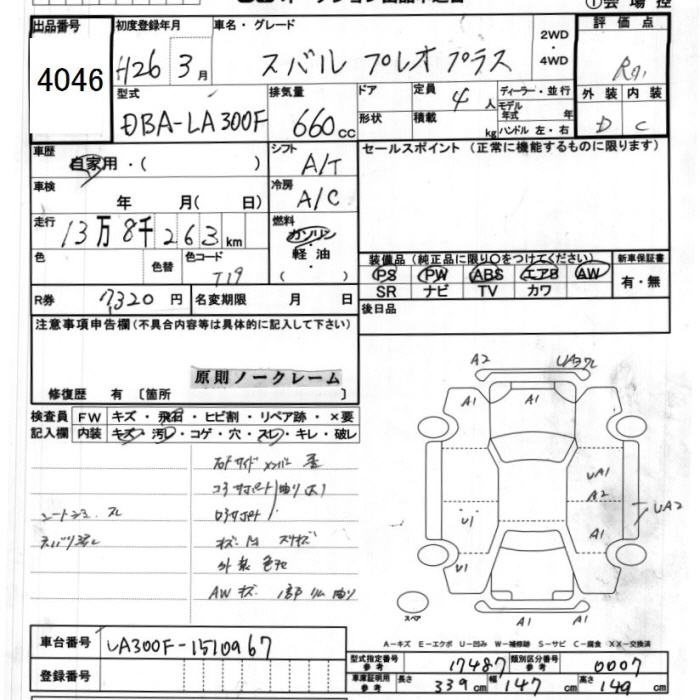 出品番号 初度登録年月 車名・グレード 評価点
4046 H26年 3月 スバル プレオプラス 2WD・4WD RA1
型式 排気量 ドア 定員 4人 ディーラー・並行 外装 内装
DBA-LA300F 660cc 形状 積載 kg モデル年式 年 ハンドル 左・右 D C
車歴 自家用・( ) シフト A/T セールスポイント(正常に機能するものに限ります)
車検 年 月( 日) 冷房 A/C
走行 13万8千263km 燃料 ガソリン・軽油 ( )
色 色替 色コード T19
装備品(純正品に限り○をつけてください) 新車保証書
PS PW ABS エアB AW 有・無
SR ナビ TV カワ
R券 7320円 名変期限 月 日 後日品
注意事項申告欄(不具合内容等は具体的に記入して下さい)
原則ノークレーム
修復歴 有 〔箇所 〕
検査員記入欄 FW キズ・飛石・ヒビ割・リペア跡・×要
内装 キズ・汚レ・コゲ・穴・スレ・キレ・破レ
外装 色
AW キズ
A2 UA3
A1 A1 A1
UA1
A2
UA2
U1 A1
U1
A1 A1
スペア
A－キズ E－エクボ U－凹み W－補修跡 S－サビ C－腐食 XX－交換済
車台番号 LA300F-1510967
型式指定番号 参考 17487 類別区分番号 参考 0007
登録番号 車庫証明用 参考 長さ 339cm 幅 147cm 高さ 149cm